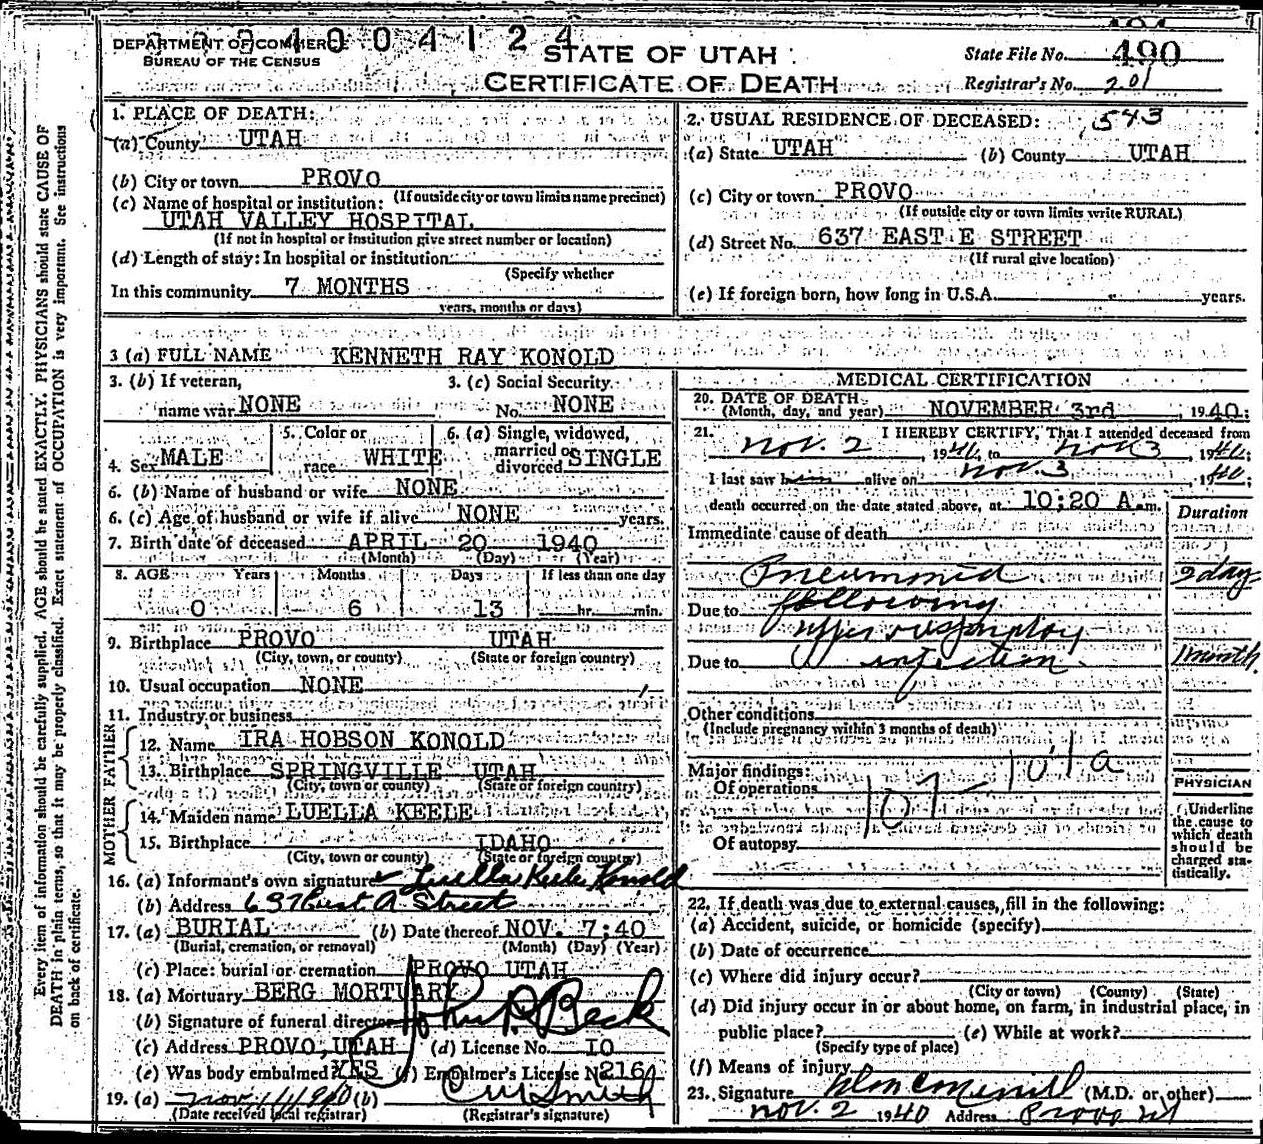 DEPARTMENT OF COMMERCE
BUREAU OF THE CENSUS
4004124
STATE OF UTAH
CERTIFICATE OF DEATH
State File No. 490
Registrar's No. 201
Every item of information should be carefully supplied. AGE should be stated EXACTLY. PHYSICIANS should state CAUSE OF
DEATH in plain terms, so that it may be properly classified. Exact statement of OCCUPATION is very important. See instructions
on back of certificate.
1. PLACE OF DEATH:
(a) County UTAH
(b) City or town PROVO
(If outside city or town limits name precinct)
(c) Name of hospital or institution:
UTAH VALLEY HOSPITAL
(If not in hospital or institution give street number or location)
(d) Length of stay: In hospital or institution
(Specify whether
In this community 7 MONTHS
years, months or days)
2. USUAL RESIDENCE OF DECEASED: 543
(a) State UTAH (b) County UTAH
(c) City or town PROVO
(If outside city or town limits write RURAL)
(d) Street No. 637 EAST E STREET
(If rural give location)
(e) If foreign born, how long in U.S.A. years.
3 (a) FULL NAME KENNETH RAY KONOLD
3. (b) If veteran, 3. (c) Social Security
name war NONE No. NONE
4. Sex MALE 5. Color or race WHITE 6. (a) Single, widowed, married or divorced SINGLE
6. (b) Name of husband or wife NONE
6. (c) Age of husband or wife if alive NONE years.
7. Birth date of deceased APRIL 20 1940
(Month) (Day) (Year)
8. AGE Years Months Days If less than one day
0 6 13 hr. min.
9. Birthplace PROVO UTAH
(City, town, or county) (State or foreign country)
10. Usual occupation NONE
11. Industry or business
FATHER
12. Name IRA HOBSON KONOLD
13. Birthplace SPRINGVILLE UTAH
(City, town or county) (State or foreign country)
MOTHER
14. Maiden name LUELLA KEELE
15. Birthplace IDAHO
(City, town or county) (State or foreign country)
16. (a) Informant's own signature Luella Keele Konold
(b) Address 637 East A Street
17. (a) BURIAL (b) Date thereof NOV. 7:40
(Burial, cremation, or removal) (Month) (Day) (Year)
(c) Place: burial or cremation PROVO UTAH
18. (a) Mortuary BERG MORTUARY
(b) Signature of funeral director John P. Beck
(c) Address PROVO, UTAH (d) License No. 10
(e) Was body embalmed? YES (f) Embalmer's License No. 216
19. (a) Nov 1940 (b) Smith
(Date received local registrar) (Registrar's signature)
MEDICAL CERTIFICATION
20. DATE OF DEATH
(Month, day, and year) NOVEMBER 3rd, 1940;
21. I HEREBY CERTIFY, That I attended deceased from
Nov. 2, 1940, to Nov 3, 1940;
I last saw him alive on Nov. 3, 1940;
death occurred on the date stated above, at 10:20 A.m.
Duration
Immediate cause of death
Pneumonia 2 day
Due to following
upper respiratory
Due to infection 1 month
Other conditions
(Include pregnancy within 3 months of death)
Major findings:
Of operations 107 - 101a
Of autopsy
PHYSICIAN
Underline
the cause to
which death
should be
charged sta-
tistically.
22. If death was due to external causes, fill in the following:
(a) Accident, suicide, or homicide (specify)
(b) Date of occurrence
(c) Where did injury occur?
(City or town) (County) (State)
(d) Did injury occur in or about home, on farm, in industrial place, in
public place? (e) While at work?
(Specify type of place)
(f) Means of injury
23. Signature (M.D. or other)
Nov. 2 1940 Address Provo Ut